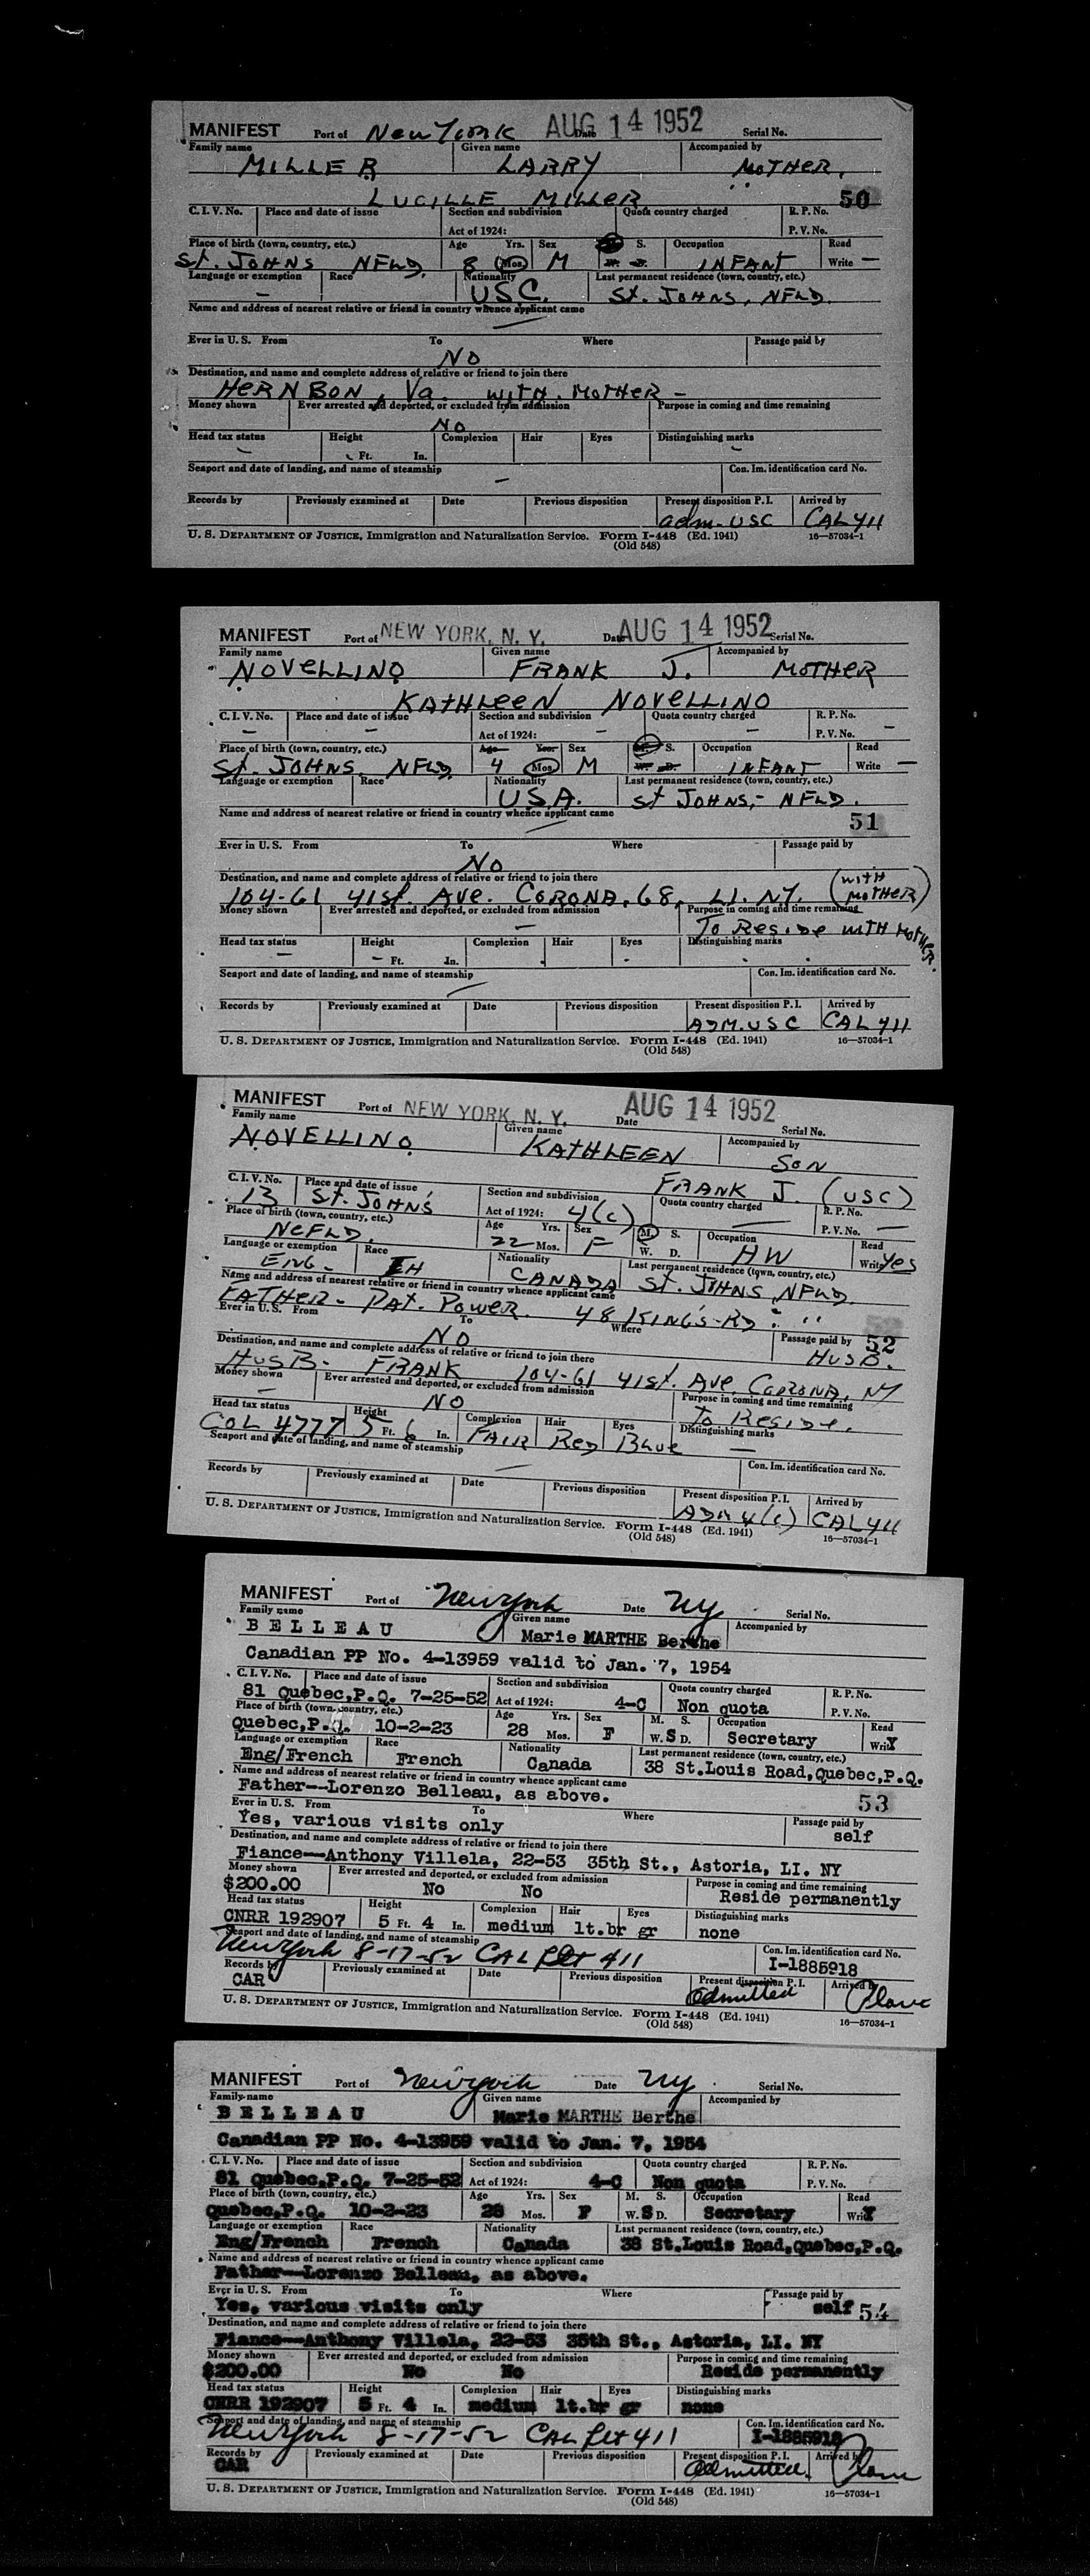 MANIFEST Port of New York Date AUG 14 1952 Serial No.
Family name Given name Accompanied by
MILLER LARRY MOTHER,
LUCILLE MILLER 50
C. I. V. No. Place and date of issue Section and subdivision Quota country charged R. P. No.
Act of 1924: P. V. No.
Place of birth (town, country, etc.) Age Yrs. Sex S. Occupation Read
St. JOHNS NFLD. 8 Mos. M W. D. INFANT Write —
Language or exemption Race Nationality Last permanent residence (town, country, etc.)
— USC. St. JOHNS, NFLD.
Name and address of nearest relative or friend in country whence applicant came
—
Ever in U. S. From To Where Passage paid by
NO
Destination, and name and complete address of relative or friend to join there
HERNBON, Va. WITH MOTHER —
Money shown Ever arrested and deported, or excluded from admission Purpose in coming and time remaining
NO
Head tax status Height Complexion Hair Eyes Distinguishing marks
— Ft. In. —
Seaport and date of landing, and name of steamship Con. Im. identification card No.
—
Records by Previously examined at Date Previous disposition Present disposition P. I. Arrived by
adm-USC CAL 411
U. S. DEPARTMENT OF JUSTICE, Immigration and Naturalization Service. Form I-448 (Ed. 1941) 16—57034-1
(Old 548)
MANIFEST Port of NEW YORK, N. Y. Date AUG 14 1952 Serial No.
Family name Given name Accompanied by
NOVELLINO FRANK J. MOTHER
KATHLEEN NOVELLINO
C. I. V. No. Place and date of issue Section and subdivision Quota country charged R. P. No.
— — Act of 1924: — — P. V. No. —
Place of birth (town, country, etc.) Age Yrs. Sex M. S. Occupation Read
St. JOHNS, NFLD. 4 Mos. M W. D. INFANT Write —
Language or exemption Race Nationality Last permanent residence (town, country, etc.)
U.S.A. St JOHNS,- NFLD.
Name and address of nearest relative or friend in country whence applicant came 51
—
Ever in U. S. From To Where Passage paid by
NO
Destination, and name and complete address of relative or friend to join there
104-61 41st. Ave. CORONA, 68, LI. NY. (WITH MOTHER)
Money shown Ever arrested and deported, or excluded from admission Purpose in coming and time remaining
— To Reside WITH MOTHER.
Head tax status Height Complexion Hair Eyes Distinguishing marks
— — Ft. In.
Seaport and date of landing, and name of steamship Con. Im. identification card No.
—
Records by Previously examined at Date Previous disposition Present disposition P. I. Arrived by
ADM. USC CAL 411
U. S. DEPARTMENT OF JUSTICE, Immigration and Naturalization Service. Form I-448 (Ed. 1941) 16—57034-1
(Old 548)
MANIFEST Port of NEW YORK, N. Y. Date AUG 14 1952 Serial No.
Family name Given name Accompanied by
NOVELLINO KATHLEEN SON
FRANK J. (USC)
C. I. V. No. Place and date of issue Section and subdivision Quota country charged R. P. No.
13 St. JOHNS Act of 1924: 4(c) — P. V. No. —
Place of birth (town, country, etc.) Age Yrs. Sex M. S. Occupation Read
NEFLD. 22 Mos. F W. D. HW Write Yes
Language or exemption Race Nationality Last permanent residence (town, country, etc.)
ENG- IH CANADA St. JOHNS, NFLD.
Name and address of nearest relative or friend in country whence applicant came
FATHER- PAT. POWER. 48 KING'S-RD. " "
Ever in U. S. From To Where Passage paid by 52
NO HUSB.
Destination, and name and complete address of relative or friend to join there
HUSB- FRANK 104-61 41st. Ave. CORONA, NY
Money shown Ever arrested and deported, or excluded from admission Purpose in coming and time remaining
— NO To Reside.
Head tax status Height Complexion Hair Eyes Distinguishing marks
COL 4777 5 Ft. 6 In. FAIR Red Blue —
Seaport and date of landing, and name of steamship Con. Im. identification card No.
—
Records by Previously examined at Date Previous disposition Present disposition P. I. Arrived by
ADM 4(c) CAL 411
U. S. DEPARTMENT OF JUSTICE, Immigration and Naturalization Service. Form I-448 (Ed. 1941) 16—57034-1
(Old 548)
MANIFEST Port of New York Date NY Serial No.
Family name Given name Accompanied by
BELLEAU Marie MARTHE Berthe
Canadian PP No. 4-13959 valid to Jan. 7, 1954
C. I. V. No. Place and date of issue Section and subdivision Quota country charged R. P. No.
81 Quebec,P.Q. 7-25-52 Act of 1924: 4-C Non quota P. V. No.
Place of birth (town, country, etc.) Age Yrs. Sex M. S. Occupation Read
Quebec,P.Q. 10-2-23 28 Mos. F W. S D. Secretary Write Y
Language or exemption Race Nationality Last permanent residence (town, country, etc.)
Eng/French French Canada 38 St.Louis Road,Quebec,P.Q.
Name and address of nearest relative or friend in country whence applicant came
Father--Lorenzo Belleau, as above. 53
Ever in U. S. From To Where Passage paid by
Yes, various visits only self
Destination, and name and complete address of relative or friend to join there
Fiance--Anthony Villela, 22-53 35th St., Astoria, LI. NY
Money shown Ever arrested and deported, or excluded from admission Purpose in coming and time remaining
$200.00 No No Reside permanently
Head tax status Height Complexion Hair Eyes Distinguishing marks
CNRR 192907 5 Ft. 4 In. medium lt.br gr none
Seaport and date of landing, and name of steamship Con. Im. identification card No.
New York 8-17-52 CAL flt 411 I-1885918
Records by Previously examined at Date Previous disposition Present disposition P. I. Arrived by
CAR admitted Plane
U. S. DEPARTMENT OF JUSTICE, Immigration and Naturalization Service. Form I-448 (Ed. 1941) 16—57034-1
(Old 548)
MANIFEST Port of New York Date NY Serial No.
Family name Given name Accompanied by
BELLEAU Marie MARTHE Berthe
Canadian PP No. 4-13959 valid to Jan. 7, 1954
C. I. V. No. Place and date of issue Section and subdivision Quota country charged R. P. No.
81 Quebec,P.Q. 7-25-52 Act of 1924: 4-C Non quota P. V. No.
Place of birth (town, country, etc.) Age Yrs. Sex M. S. Occupation Read
Quebec,P.Q. 10-2-23 28 Mos. F W. S D. Secretary Write Y
Language or exemption Race Nationality Last permanent residence (town, country, etc.)
Eng/French French Canada 38 St.Louis Road,Quebec,P.Q.
Name and address of nearest relative or friend in country whence applicant came
Father--Lorenzo Belleau, as above.
Ever in U. S. From To Where Passage paid by
Yes, various visits only self 54
Destination, and name and complete address of relative or friend to join there
Fiance--Anthony Villela, 22-53 35th St., Astoria, LI. NY
Money shown Ever arrested and deported, or excluded from admission Purpose in coming and time remaining
$200.00 No No Reside permanently
Head tax status Height Complexion Hair Eyes Distinguishing marks
CNRR 192907 5 Ft. 4 In. medium lt.br gr none
Seaport and date of landing, and name of steamship Con. Im. identification card No.
New York 8-17-52 CAL flt 411 I-1885918
Records by Previously examined at Date Previous disposition Present disposition P. I. Arrived by
CAR admitted. Plane
U. S. DEPARTMENT OF JUSTICE, Immigration and Naturalization Service. Form I-448 (Ed. 1941) 16—57034-1
(Old 548)